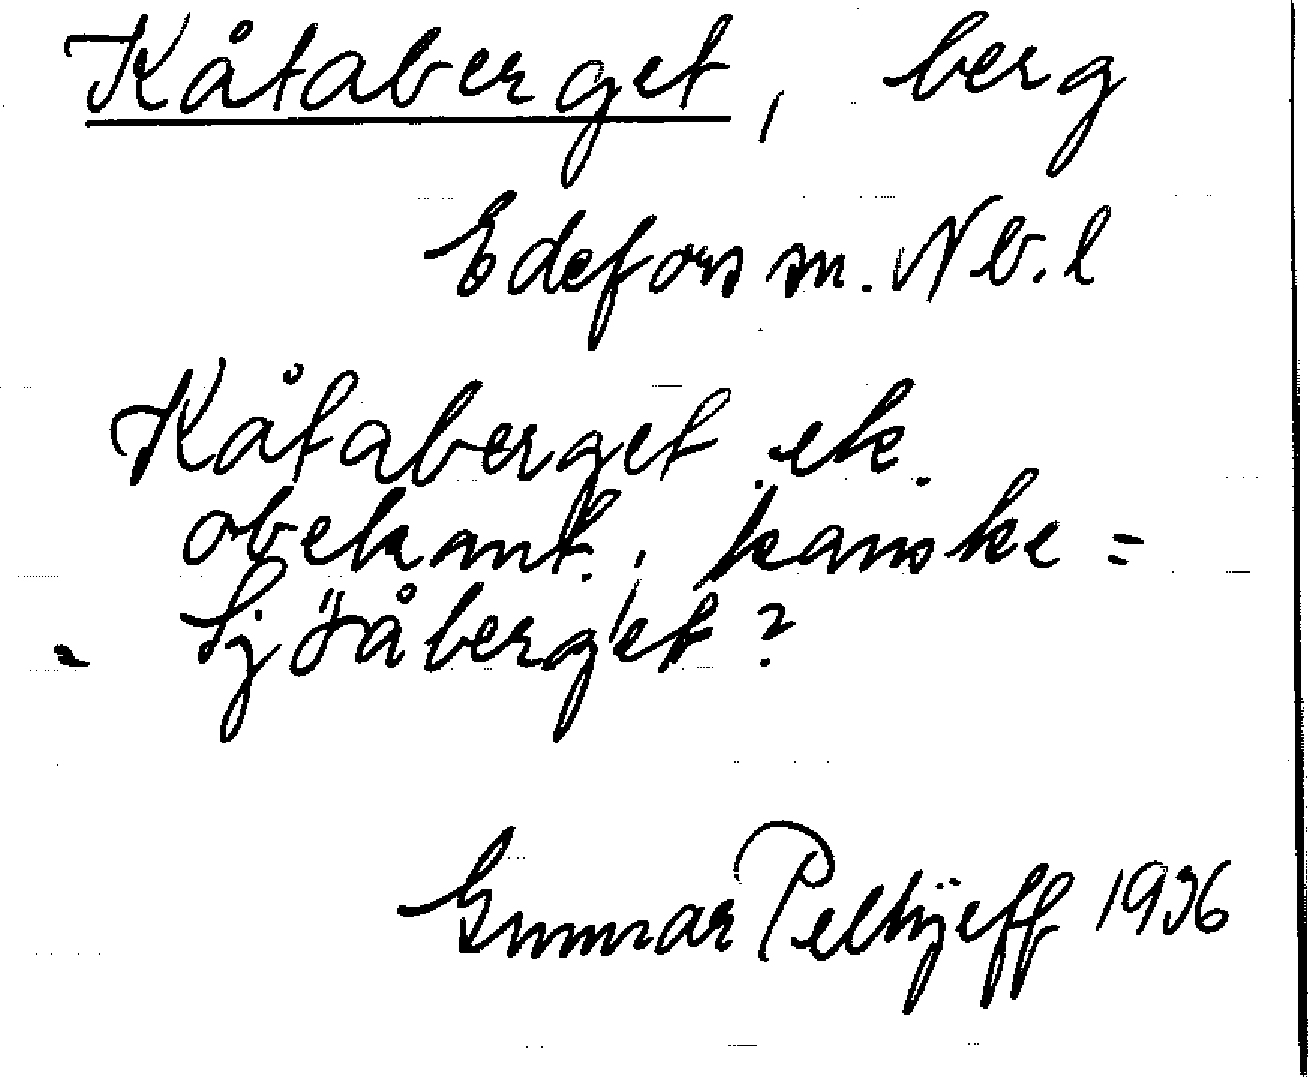 Kåtaberget, berg
Edefors sn. Nb. l
Kåtaberget ek.
obekant, kanske =
Sjöåberget?
Gunnar Pellijeff 1936